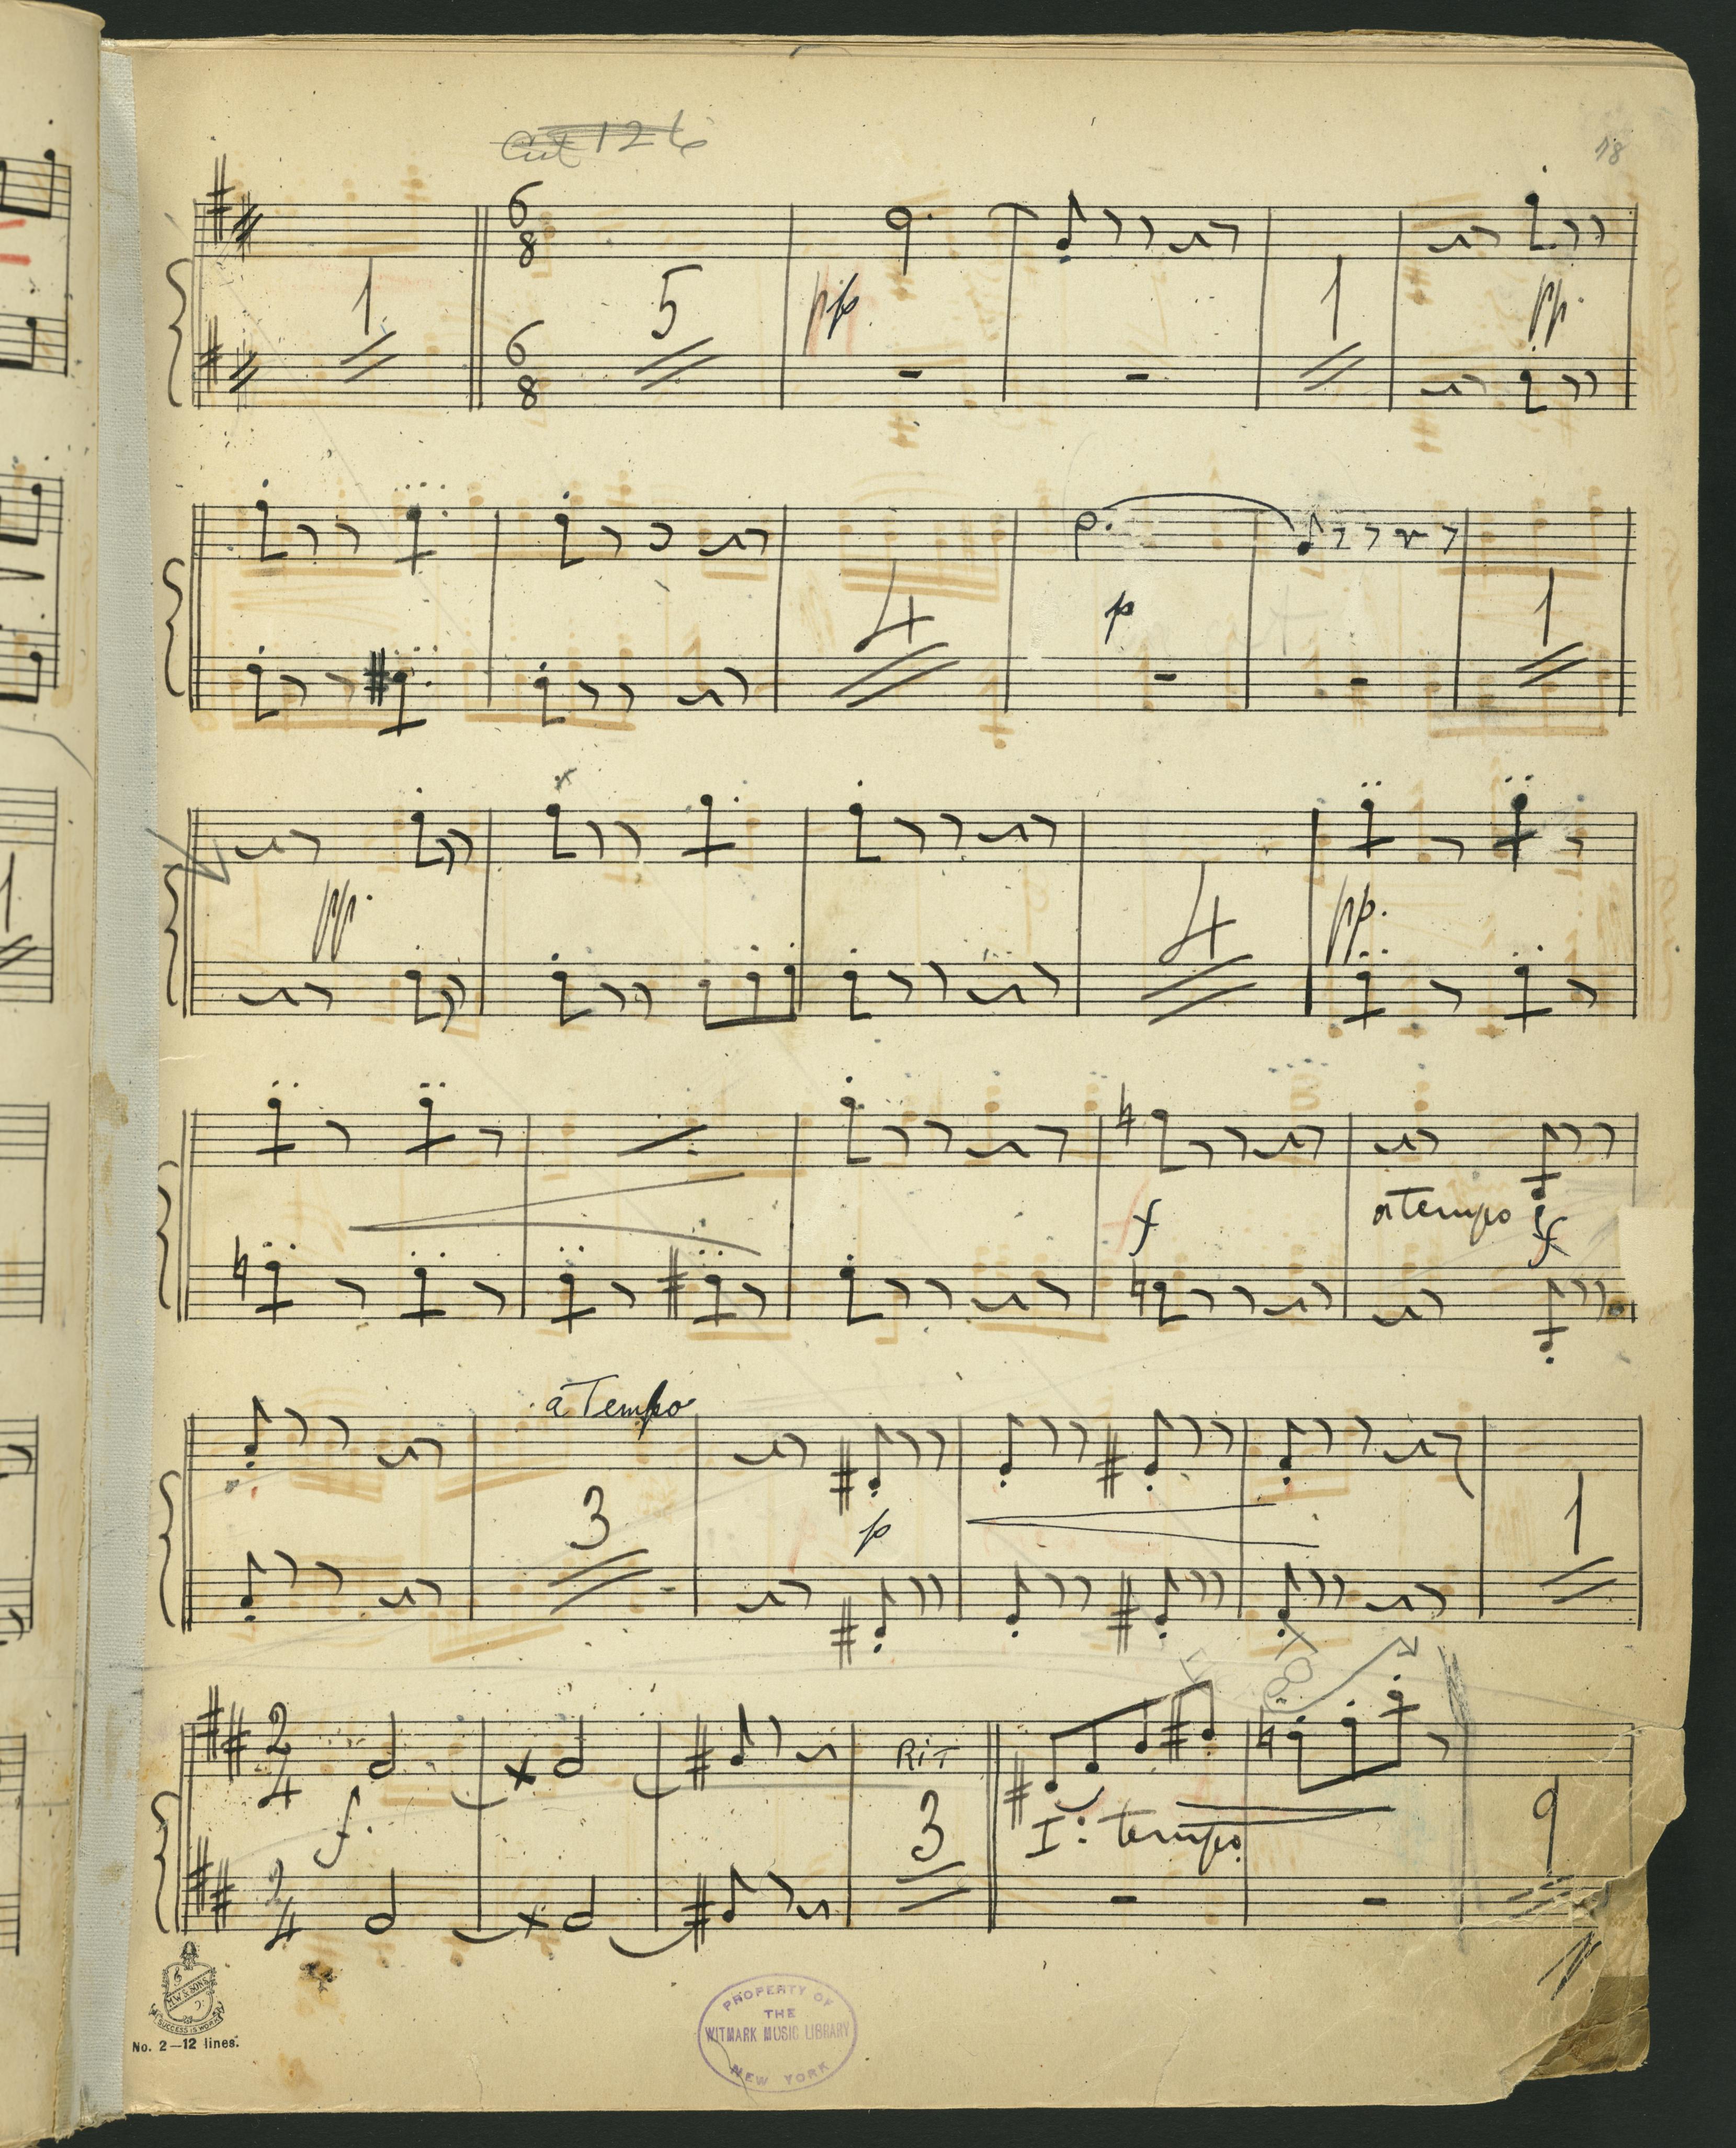 Cut 126
18
6 6
8 8
1 5 1
pp pp.
4 1
p
pp. 4 pp.
f a tempo f
a Tempo
3 p 1
2 RIT
4
f. 3 I: tempo 9
2
4
M.W. & SONS
SUCCESS IS WORK
No. 2—12 lines.
PROPERTY OF
THE
WITMARK MUSIC LIBRARY
NEW YORK